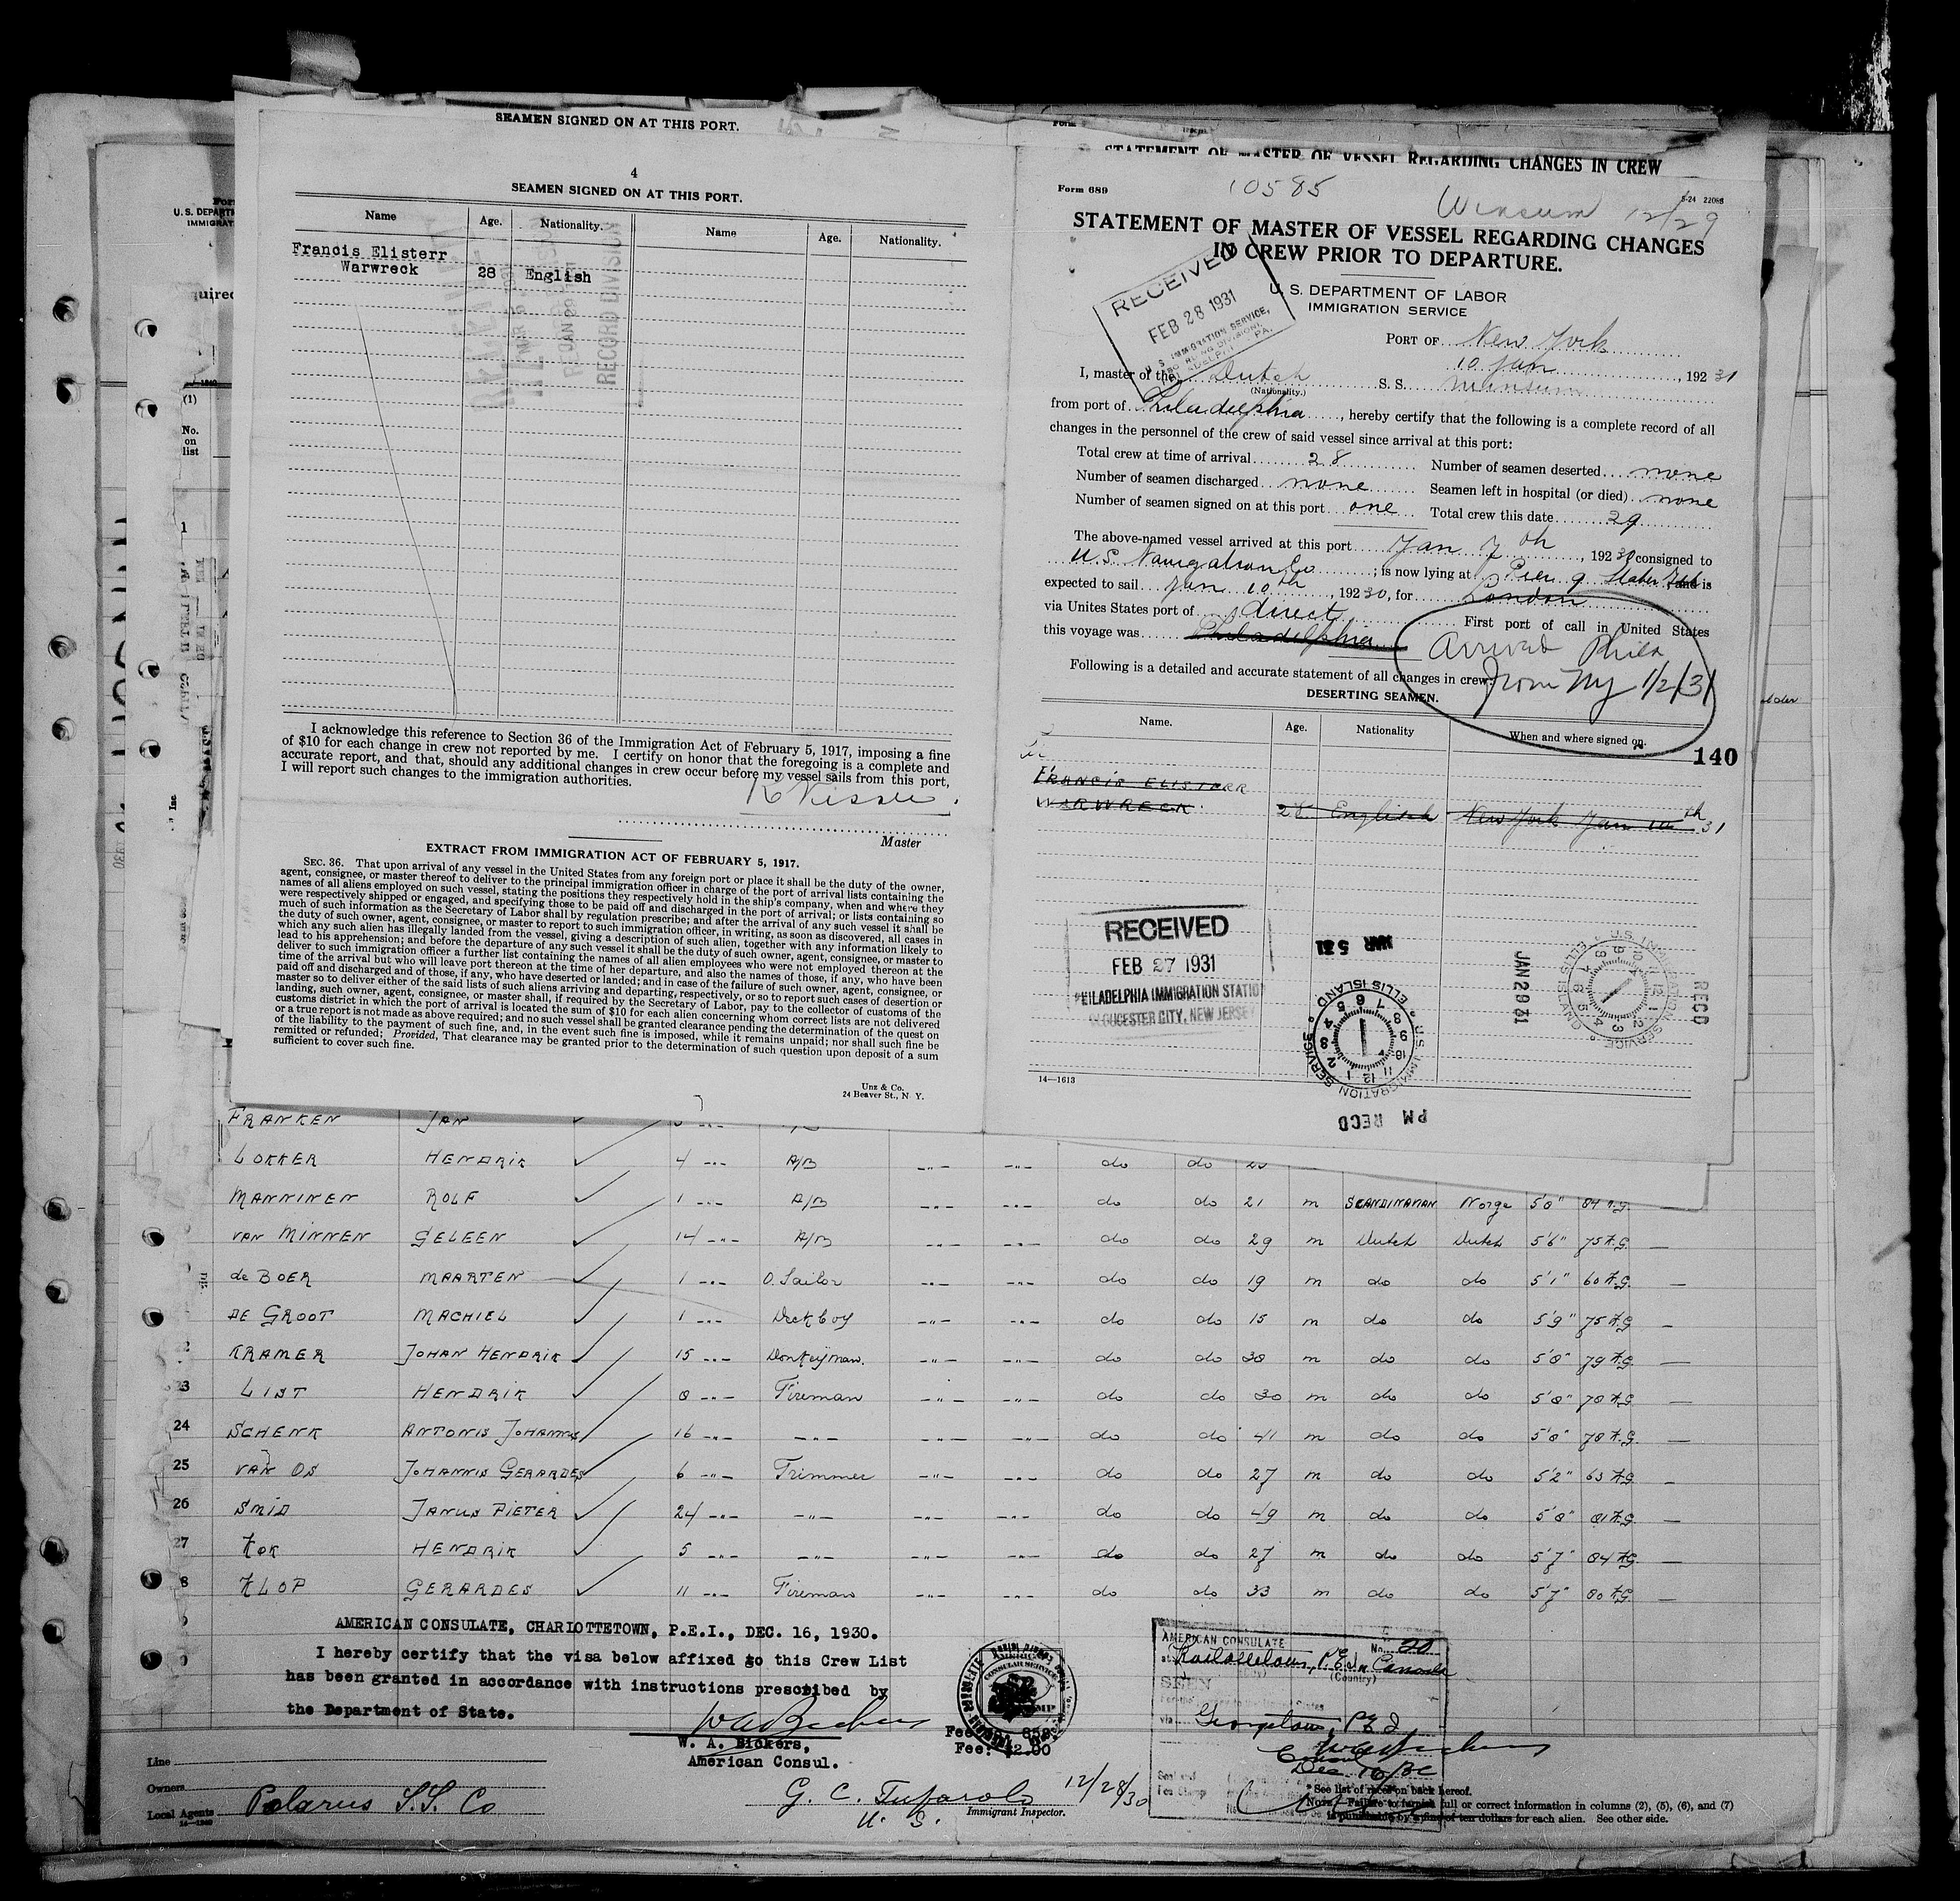 SEAMEN SIGNED ON AT THIS PORT.
4
SEAMEN SIGNED ON AT THIS PORT.
Name Age. Nationality. Name Age. Nationality.
Francis Elisterr
Warwreck 28 English
RECORD DIVISION
I acknowledge this reference to Section 36 of the Immigration Act of February 5, 1917, imposing a fine
of $10 for each change in crew not reported by me. I certify on honor that the foregoing is a complete and
accurate report, and that, should any additional changes in crew occur before my vessel sails from this port,
I will report such changes to the immigration authorities.
Master
EXTRACT FROM IMMIGRATION ACT OF FEBRUARY 5, 1917.
SEC. 36. That upon arrival of any vessel in the United States from any foreign port or place it shall be the duty of the owner,
agent, consignee, or master thereof to deliver to the principal immigration officer in charge of the port of arrival lists containing the
names of all aliens employed on such vessel, stating the positions they respectively hold in the ship's company, when and where they
were respectively shipped or engaged, and specifying those to be paid off and discharged in the port of arrival; or lists containing so
much of such information as the Secretary of Labor shall by regulation prescribe; and after the arrival of any such vessel it shall be
the duty of such owner, agent, consignee, or master to report to such immigration officer, in writing, as soon as discovered, all cases in
which any such alien has illegally landed from the vessel, giving a description of such alien, together with any information likely to
lead to his apprehension; and before the departure of any such vessel it shall be the duty of such owner, agent, consignee, or master to
deliver to such immigration officer a further list containing the names of all alien employees who were not employed thereon at the
time of the arrival but who will leave port thereon at the time of her departure, and also the names of those, if any, who have been
paid off and discharged and of those, if any, who have deserted or landed; and in case of the failure of such owner, agent, consignee, or
master so to deliver either of the said lists of such aliens arriving and departing, respectively, or so to report such cases of desertion or
landing, such owner, agent, consignee, or master shall, if required by the Secretary of Labor, pay to the collector of customs of the
customs district in which the port of arrival is located the sum of $10 for each alien concerning whom correct lists are not delivered
or a true report is not made as above required; and no such vessel shall be granted clearance pending the determination of the quest on
of the liability to the payment of such fine, and, in the event such fine is imposed, while it remains unpaid; nor shall such fine be
remitted or refunded; Provided, That clearance may be granted prior to the determination of such question upon deposit of a sum
sufficient to cover such fine.
Unz & Co.
24 Beaver St., N Y.
STATEMENT OF MASTER OF VESSEL REGARDING CHANGES IN CREW
Form 689 10585 Winsum 12/29 5-24 22088
STATEMENT OF MASTER OF VESSEL REGARDING CHANGES
IN CREW PRIOR TO DEPARTURE.
U. S. DEPARTMENT OF LABOR
IMMIGRATION SERVICE
RECEIVED
FEB 28 1931
U. S. IMMIGRATION SERVICE,
PORT OF New York
10 Jan, 192 31
I, master of the Dutch S. S. Winsum
(Nationality.)
from port of Philadelphia, hereby certify that the following is a complete record of all
changes in the personnel of the crew of said vessel since arrival at this port:
Total crew at time of arrival 28 Number of seamen deserted none
Number of seamen discharged none Seamen left in hospital (or died) none
Number of seamen signed on at this port one Total crew this date 29
The above-named vessel arrived at this port Jan 7th, 192 30 consigned to
U.S. Navigation Co; is now lying at Pier 9 and is
expected to sail Jan 10th, 192 30, for London
via Unites States port of direct First port of call in United States
this voyage was Philadelphia
Arrived Phila
from NY 1/2/31
Following is a detailed and accurate statement of all changes in crew:
DESERTING SEAMEN.
Name. Age. Nationality When and where signed on.
140
FRANCIS ELISTERR
WARWRECK 28 English New York Jan 10th 31
RECEIVED
FEB 27 1931
PHILADELPHIA IMMIGRATION STATIO
GLOUCESTER CITY, NEW JERSEY
MAR 5 31
U. S. IMMIGRATION SERVICE ELLIS ISLAND
PM RECD
JAN 29 31
U. S. IMMIGRATION SERVICE ELLIS ISLAND
RECD
14—1613
U. S. DEPART
IMMIGRAT
quired
(1)
No.
on
list
1
FRANKEN JAN
LOKKER HENDRIK 4 -"- A/B -"- -"- do do
MANNINEN ROLF 1 -"- A/B -"- -"- do do 21 m SCANDINAVIAN Norge 5'8" 84 K.G.
VAN MINNEN GELEEN 14 -"- A/B -"- -"- do do 29 m Dutch Dutch 5'6" 75 K.G. —
de BOER MAARTEN 1 -"- O. Sailor -"- -"- do do 19 m do do 5'1" 60 K.G. —
DE GROOT MACHIEL 1 -"- Deckboy -"- -"- do do 15 m do do 5'9" 75 K.G —
KRAMER JOHAN HENDRIK 15 -"- Donkeyman. -"- -"- do do 38 m do do 5'8" 79 K.G. —
23 LIST HENDRIK 8 -"- Fireman -"- -"- do do 30 m do do 5'8" 78 K.G
24 SCHENK ANTONIS JOHANNIS 16 -"- -"- -"- -"- do do 41 m do do 5'8" 78 K.G. —
25 VAN OS JOHANNIS GERARDES 6 -"- Trimmer -"- -"- do do 27 m do do 5'2" 63 K.G —
26 SMID JANUS PIETER 24 -"- -"- -"- -"- do do 49 m do do 5'8" 81 K.G. —
27 KOK HENDRIK 5 -"- -"- -"- -"- do do 27 m do do 5'7" 84 K.G. —
8 KLOP GERARDES 11 -"- Fireman -"- -"- do do 33 m do do 5'7" 80 K.G. —
AMERICAN CONSULATE, CHARLOTTETOWN, P.E.I., DEC. 16, 1930.
I hereby certify that the visa below affixed to this Crew List
has been granted in accordance with instructions prescribed by
the Department of State.
W. A. Bickers,
American Consul.
Fee: $2.00
AMERICAN CONSULATE
No. 20
at Charlottetown, P.E.I. Canada
(Country)
SEEN
via Georgetown, P.E.I.
Consul
Dec. 16/30
Line
Owners
Local Agents Polarus S.S. Co
G. C. Tufarolo 12/28/30
U. S. Immigrant Inspector.
* See list of races on back hereof.
NOTE.—Failure to furnish full or correct information in columns (2), (5), (6), and (7)
is punishable by a fine of ten dollars for each alien. See other side.